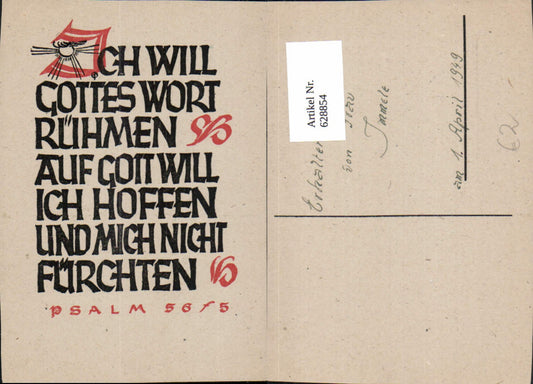 ICH WILL
GOTTES WORT
RÜHMEN
AUF GOTT WILL
ICH HOFFEN
UND MICH NICHT
FÜRCHTEN
PSALM 56/5
Artikel Nr.
628854
Erhalten
von Frau
Immele
am 1. April 1949
62.-